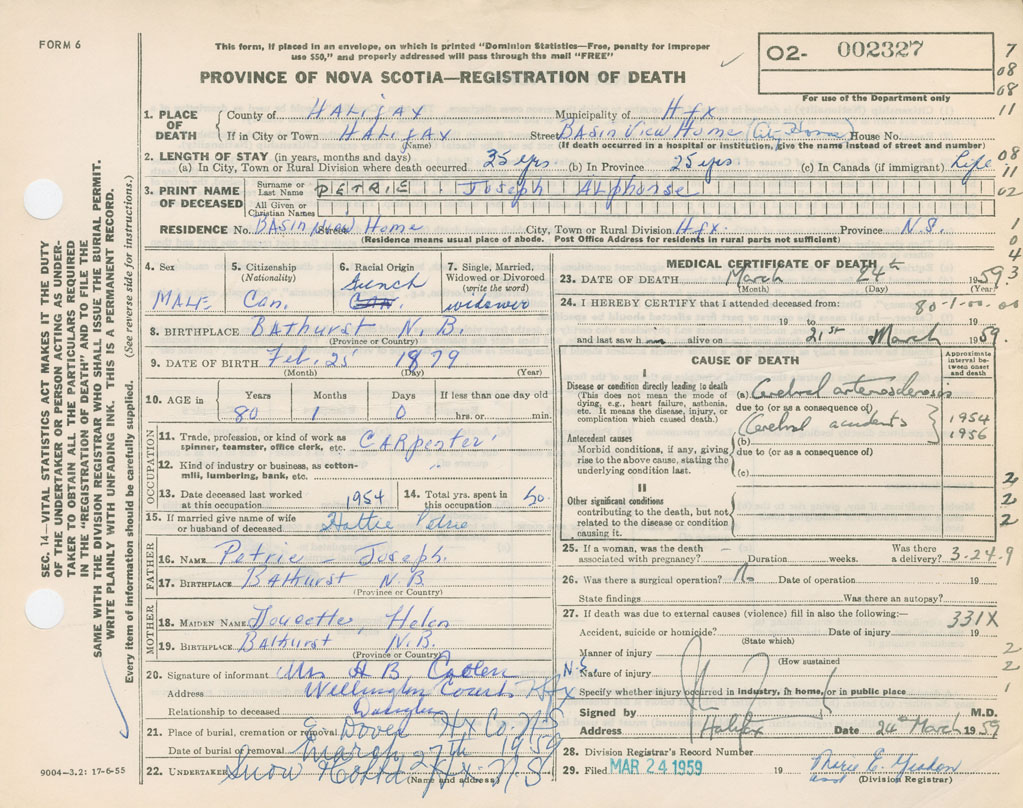 FORM 6
This form, if placed in an envelope, on which is printed "Dominion Statistics—Free, penalty for improper
use $50," and properly addressed will pass through the mail "FREE"
PROVINCE OF NOVA SCOTIA—REGISTRATION OF DEATH
02- 002327
For use of the Department only
7
08
08
11
08
11
02
1
0
4
3
SEC. 14—VITAL STATISTICS ACT MAKES IT THE DUTY
OF THE UNDERTAKER OR PERSON ACTING AS UNDER-
TAKER TO OBTAIN ALL THE PARTICULARS REQUIRED
IN THE "REGISTRATION OF DEATH" AND TO FILE THE
SAME WITH THE DIVISION REGISTRAR WHO SHALL ISSUE THE BURIAL PERMIT.
WRITE PLAINLY WITH UNFADING INK. THIS IS A PERMANENT RECORD.
Every item of information should be carefully supplied. (See reverse side for instructions.)
1. PLACE OF DEATH County of HALIFAX Municipality of Hfx
If in City or Town HALIFAX Street BASIN View Home (At Home) House No.
(Name) (If death occurred in a hospital or institution, give the name instead of street and number)
2. LENGTH OF STAY (in years, months and days)
(a) In City, Town or Rural Division where death occurred 35 yrs (b) In Province 25 yrs (c) In Canada (if immigrant) Life
3. PRINT NAME OF DECEASED Surname or Last Name PETRIE Joseph Alphonse
All Given or Christian Names
RESIDENCE No. BASIN View Home Street City, Town or Rural Division Hfx. Province N.S.
(Residence means usual place of abode. Post Office Address for residents in rural parts not sufficient)
4. Sex MALE
5. Citizenship (Nationality) Can.
6. Racial Origin French CAN.
7. Single, Married, Widowed or Divorced (write the word) widower
8. BIRTHPLACE BAthurst N.B.
(Province or Country)
9. DATE OF BIRTH Feb. 25 1879
(Month) (Day) (Year)
10. AGE in Years Months Days If less than one day old
80 1 0 hrs. or min.
OCCUPATION
11. Trade, profession, or kind of work as spinner, teamster, office clerk, etc. CARpenter
12. Kind of industry or business, as cotton-mill, lumbering, bank, etc. "
13. Date deceased last worked at this occupation 1954
14. Total yrs. spent in this occupation 50.
15. If married give name of wife or husband of deceased Hattie Petrie
FATHER
16. NAME Petrie - Joseph.
17. BIRTHPLACE BAthurst N.B.
(Province or Country)
MOTHER
18. MAIDEN NAME Doucette, Helen
19. BIRTHPLACE BAthurst N.B.
(Province or Country)
20. Signature of informant Mrs H B
Address Wellington Court Hfx N.S.
Relationship to deceased Daughter
21. Place of burial, cremation or removal E Dover Hx Co. N.S
Date of burial or removal March 27th 1959
22. UNDERTAKER Snow Hx N.S
(Name and address)
9004—3.2: 17-6-55
MEDICAL CERTIFICATE OF DEATH
23. DATE OF DEATH March 24th 1959
(Month) (Day) (Year)
24. I HEREBY CERTIFY that I attended deceased from: 80-1-00-00
19 to
and last saw him alive on 21st March 1959.
CAUSE OF DEATH
Approximate interval between onset and death
I
Disease or condition directly leading to death
(This does not mean the mode of dying, e.g., heart failure, asthenia, etc. It means the disease, injury, or complication which caused death.)
(a) Cerebral arteriosclerosis
due to (or as a consequence of)
Antecedent causes
Morbid conditions, if any, giving rise to the above cause, stating the underlying condition last.
(b) Cerebral accidents 1954
1956
due to (or as a consequence of)
(c)
II
Other significant conditions
contributing to the death, but not related to the disease or condition causing it.
2
2
2
25. If a woman, was the death associated with pregnancy? — Duration weeks. Was there a delivery? 3-24-9
26. Was there a surgical operation? No Date of operation 19
State findings Was there an autopsy?
27. If death was due to external causes (violence) fill in also the following:— 331X
Accident, suicide or homicide? Date of injury 19
(State which)
Manner of injury 2
(How sustained)
Nature of injury 2
Specify whether injury occurred in industry, in home, or in public place 1
Signed by M.D.
Address Halifax Date 24th March 1959
28. Division Registrar's Record Number
29. Filed MAR 24 1959 19 Marie E.
(Division Registrar)